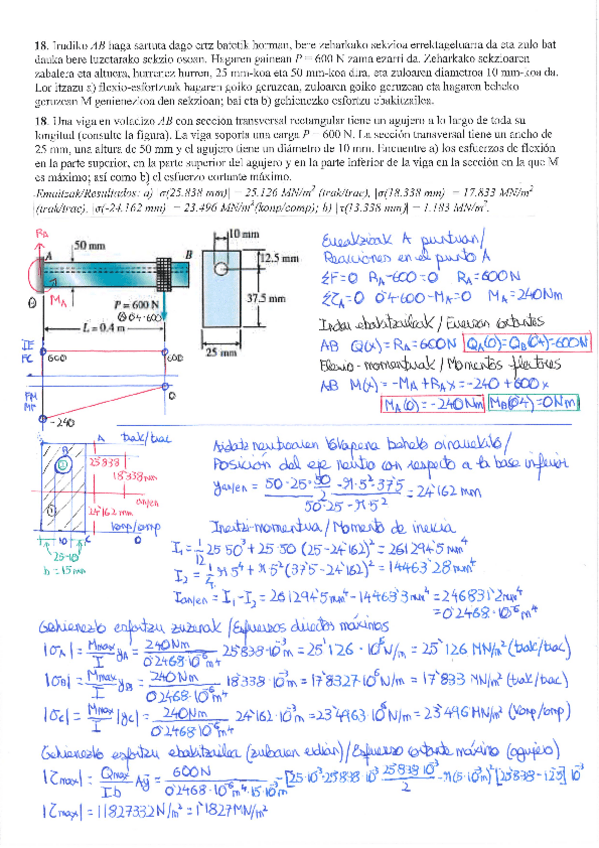 18. Irudiko AB haga sartuta dago ertz batetik horman, bere zeharkako sekzioa errektangeluarra da eta zulo bat
dauka bere luzetarako sekzio osoan. Hagaren gainean P = 600 N zama ezarri da. Zeharkako sekzioaren
zabalera eta altuera, hurrenez hurren, 25 mm-koa eta 50 mm-koa dira, eta zuloaren diametroa 10 mm-koa da.
Lor itzazu a) flexio-esfortzuak hagaren goiko geruzean, zuloaren goiko geruzean eta hagaren beheko
geruzean M genienezkoa den sekzioan; bai eta b) gehienezko esfortzu ebakitzailea.
18. Una viga en voladizo AB con sección transversal rectangular tiene un agujero a lo largo de toda su
longitud (consulte la figura). La viga soporta una carga P = 600 N. La sección transversal tiene un ancho de
25 mm, una altura de 50 mm y el agujero tiene un diámetro de 10 mm. Encuentre a) los esfuerzos de flexión
en la parte superior, en la parte superior del agujero y en la parte inferior de la viga en la sección en la que M
es máximo; así como b) el esfuerzo cortante máximo.
Emaitzak/Resultados: a) σ(25.838 mm)| = 25.126 MN/m² (trak/trac), |σ(18.338 mm) = 17.833 MN/m²
(trak/trac), |σ(-24.162 mm) = 23.496 MN/m² (konp/comp); b) |τ(13.338 mm)| = 1.183 MN/m².
RA
50 mm
A
B
MA
P = 600 N
0'4·600
L = 0.4 m
10 mm
12.5 mm
37.5 mm
25 mm
Erreakzioak A puntuan/
Reacciones en el punto A
ΣF=0 RA-600=0 RA=600N
0'4·600-MA=0 MA=240Nm
Indar ebakitzaileak/Fuerzas cortantes
AB Q(x)=RA=600N QA(0)=QB(0'4)=600N
Flexio-momentuak/Momentos flectores
AB M(x)=-MA+RAx=-240+600x
MA(0)=-240Nm MB(0'4)=0Nm
IE
FC
600
600
FM
MF
0
-240
A trak/trac
B
25'838
18'338mm
an/en
24'162 mm
konp/comp
10 C 0
25-10
b=15mm
Ardatz neutroaren kokapena beheko oinarrekiko/
Posición del eje neutro con respecto a la base inferior
yan/en = (50·25·50/2 - π·5²·37'5)/(50·25-π·5²) = 24'162 mm
Inertzi-momentua/Momento de inercia
I₁=1/12 25·50³+25·50 (25-24'162)²=261294'5mm⁴
I₂=1/4 π·5⁴+π·5²(37'5-24'162)²=14463'28mm⁴
Ian/en=I₁-I₂=261294'5mm⁴-14463'3mm⁴=246831'2mm⁴
=0'2468·10⁻⁶m⁴
Gehienezko esfortzu zuzenak/Esfuerzos directos máximos
|σA|=Mmax/I yA=240Nm/0'2468·10⁻⁶m⁴ 25'838·10⁻³m=25'126·10⁶N/m=25'126 MN/m² (trak/trac)
|σB|=Mmax/I yB=240Nm/0'2468·10⁻⁶m⁴ 18'338·10⁻³m=17'8327·10⁶N/m=17'833 MN/m² (trak/trac)
|σC|=Mmax/I |yC|=240Nm/0'2468·10⁻⁶m⁴ 24'162·10⁻³m=23'4963·10⁶N/m=23'496MN/m² (konp/comp)
Gehienezko esfortzu ebakitzailea (zuloaren erdian)/Esfuerzo cortante máximo (agujero)
|τmax|=Qmax/I·b Aȳ=600N/0'2468·10⁻⁶m⁴·15·10⁻³m
|τmax|=1182733'2N/m²=1'1827MN/m²